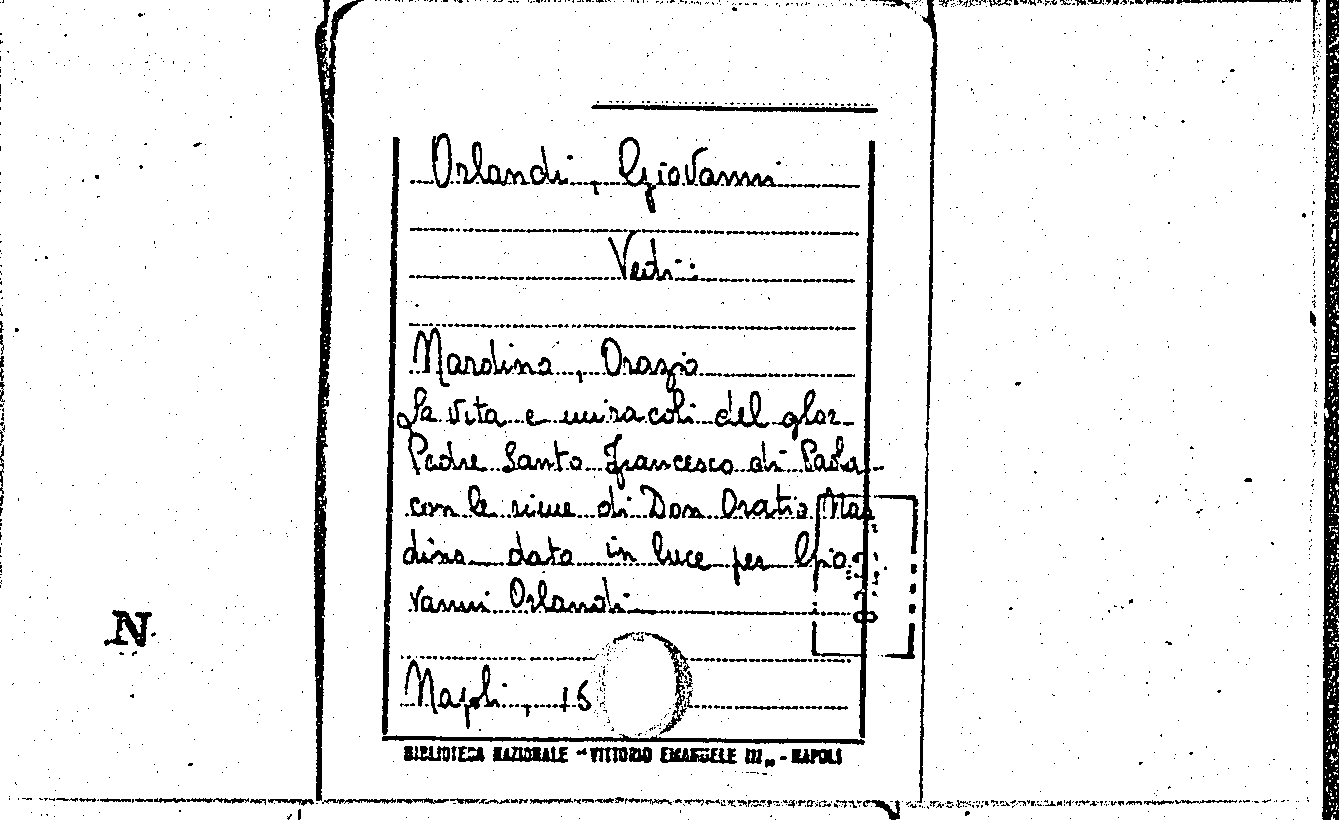 Orlandi, Giovanni
Vedi:
Nardina, Orazio
La vita e miracoli del glor.
Padre Santo Francesco di Paola
con le rime di Don Oratio Nar
dina data in luce per Gio
vanni Orlandi
Napoli, 15
BIBLIOTECA NAZIONALE "VITTORIO EMANUELE III" - NAPOLI
N